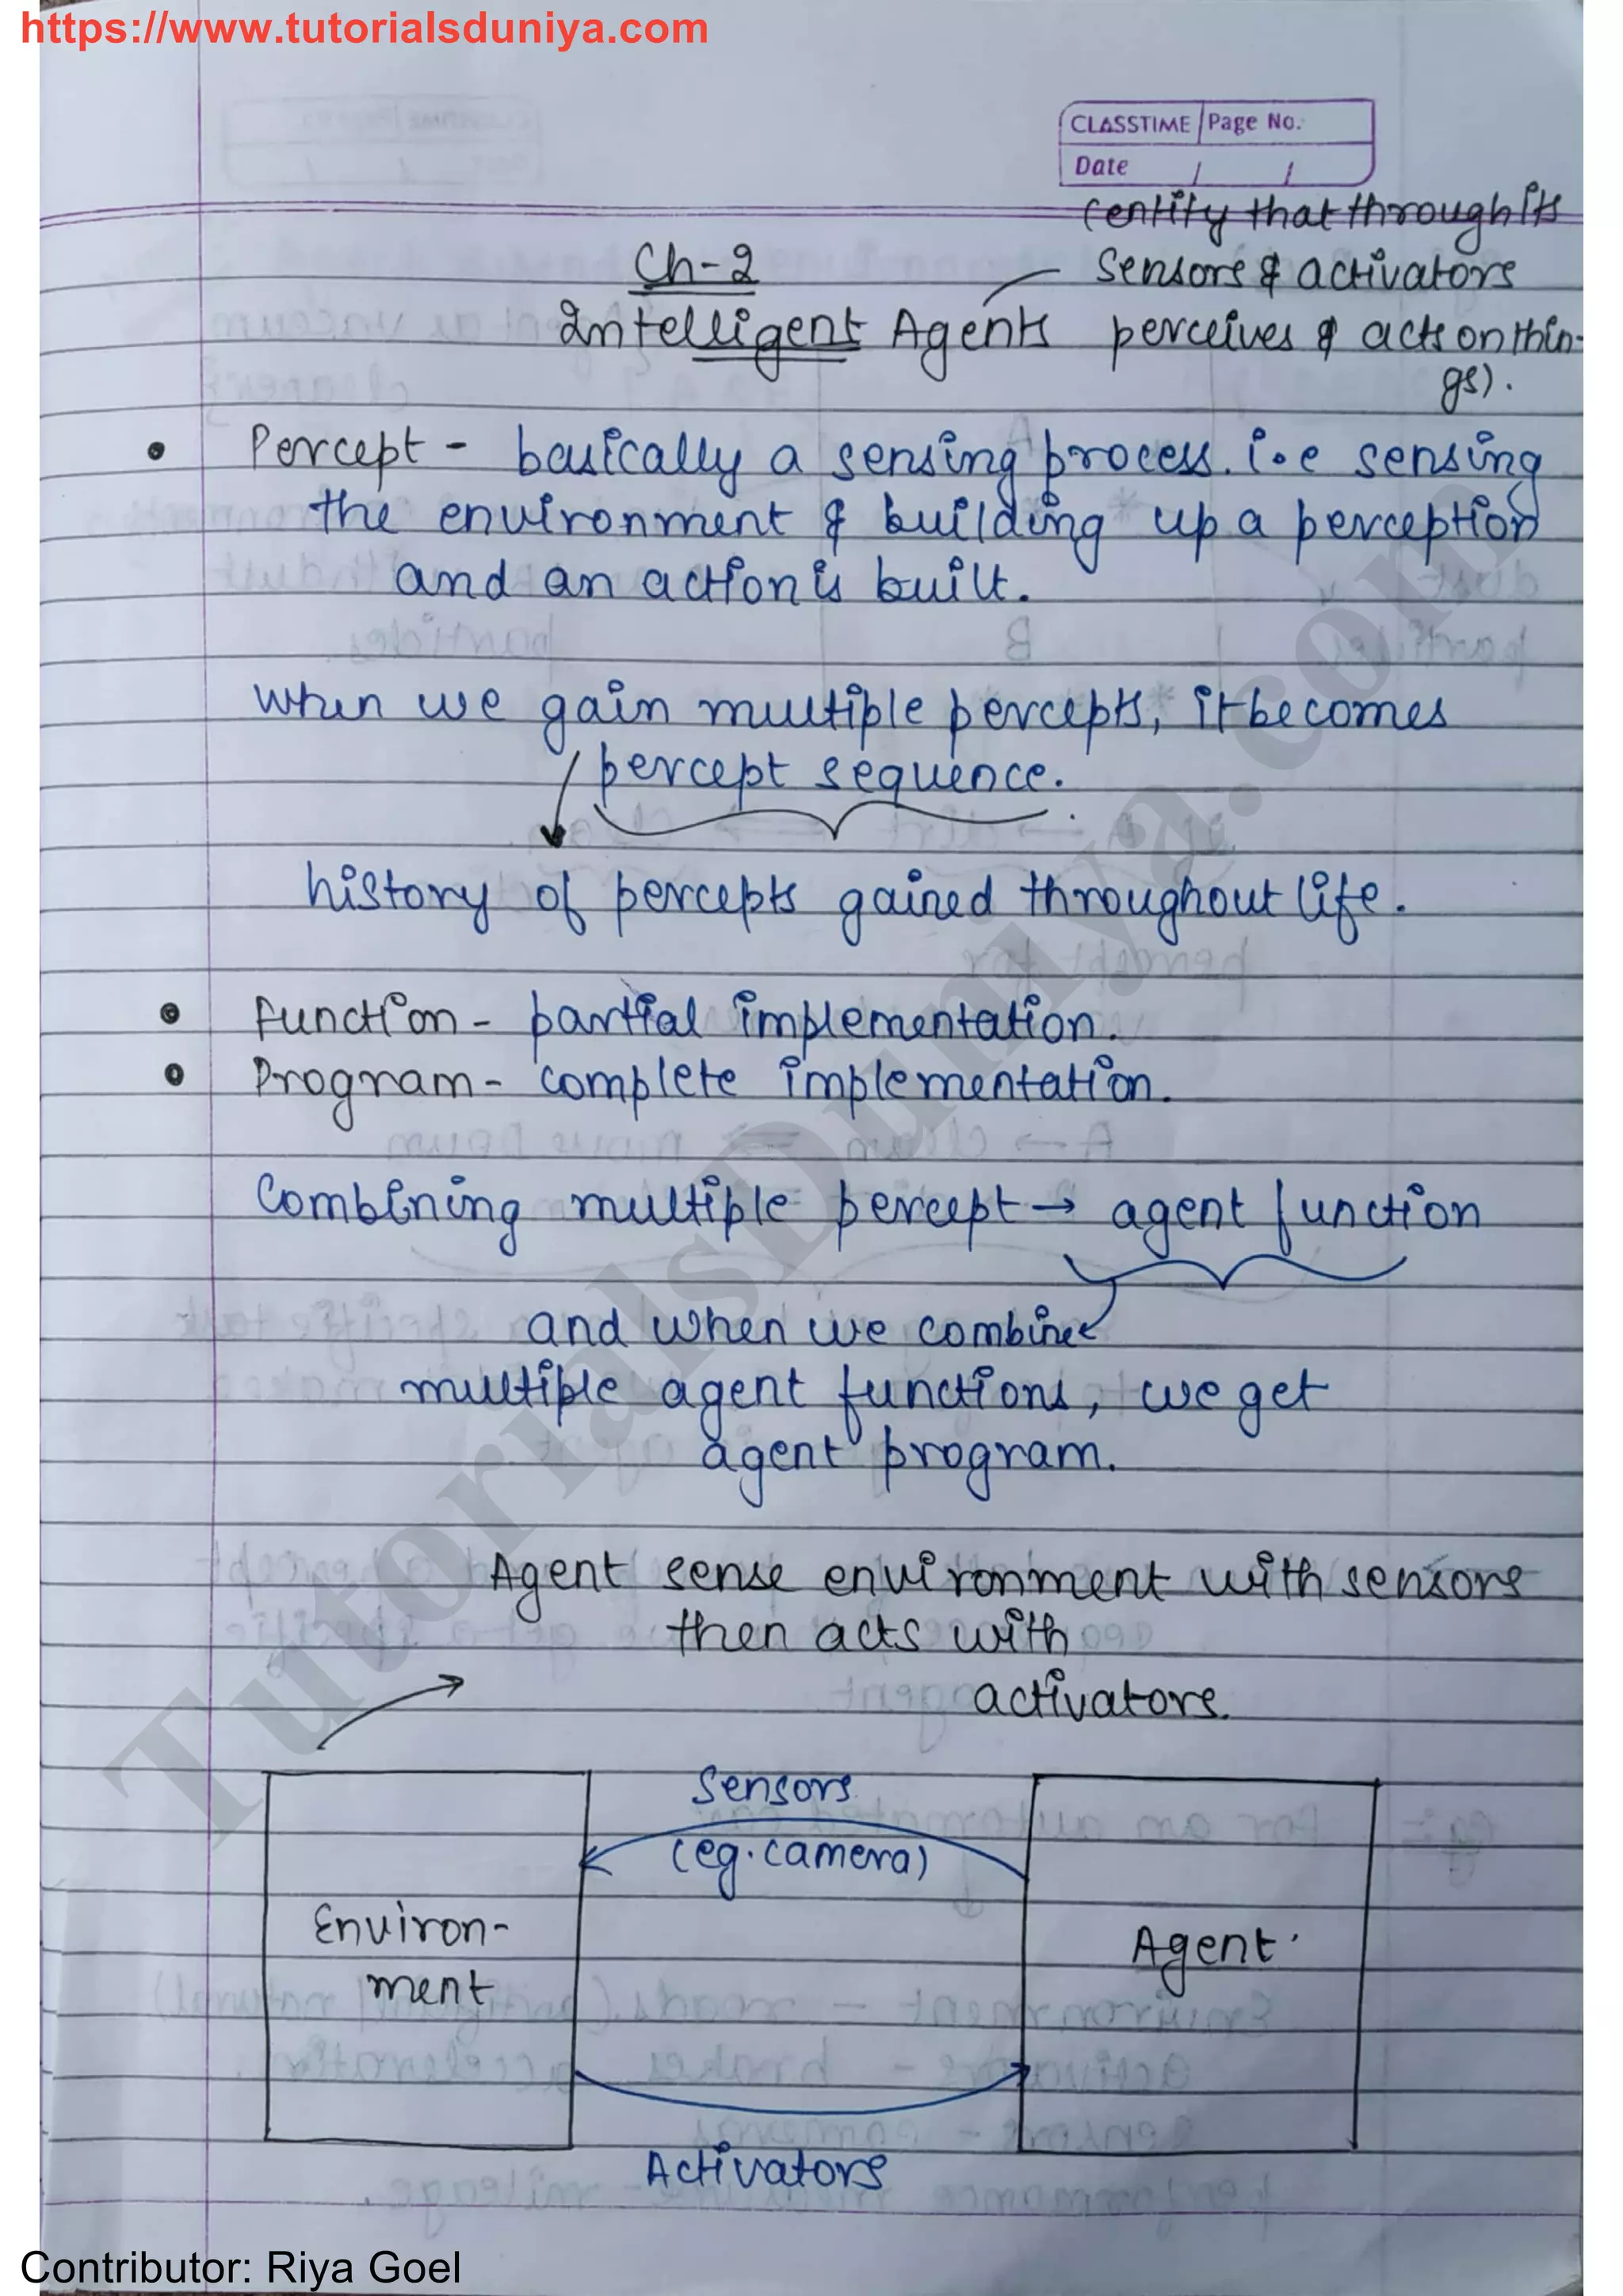 https://www.tutorialsduniya.com
CLASSTIME Page No.
Date / /
(entity that through its
Ch-2
sensors & activators
Intelligent Agents perceives & acts on thin-
gs).
• Percept - basically a sensing process. i.e sensing
the environment & building up a perception
and an action is built.
when we gain multiple percepts, it becomes
percept sequence.
history of percepts gained throughout life.
• Function - partial implementation.
• Program - complete implementation.
Combining multiple percept → agent function
and when we combine
multiple agent functions, we get
agent program.
Agent sense environment with sensors
then acts with
activators.
Sensors
(eg. camera)
Environ-
ment
Agent
Activators
TutorialsDuniya.com
Contributor: Riya Goel